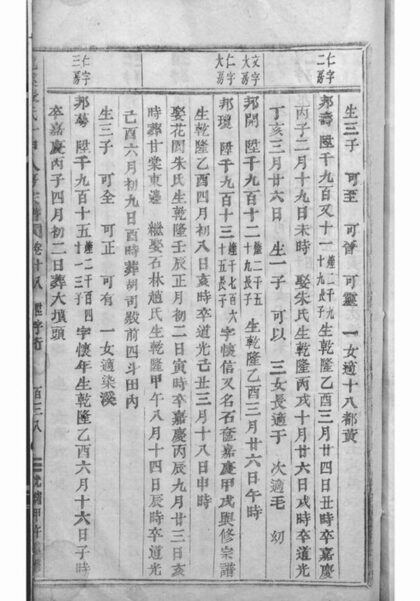 生三子 可至 可晉 可靈 一女適十八都黃
仁字二房
邦壽 陞千九百又十一鐘二千九十九長子生乾隆乙酉三月廿四日丑時卒嘉慶
丙子二月十九日未時 娶朱氏生乾隆丙戌十月廿六日戌時卒道光
丁亥三月廿六日 生一子 可以 三女長適于 次適毛 幼
文字大房
邦開 陞千九百十二鐘二千五十九長子 生乾隆乙酉三月廿六日午時
仁字大房
邦瓊 陞千九百十三鐘千七百六十五長子字懷信又名石奎嘉慶甲戌與修宗譜
生乾隆乙酉四月初八日亥時卒道光己丑三月十八日申時
娶花園朱氏生乾隆壬辰正月初二日寅時卒嘉慶丙辰九月廿三日亥
時葬甘棠東邊 繼娶石林趙氏生乾隆甲午八月十四日辰時卒道光
己酉六月初九日酉時葬胡司殿前四斗田內
生三子 可全 可正 可有 一女適染溪
仁字三房
邦蒪 陞千九百十五鐘二千四百廿一三子字懷年生乾隆乙酉六月十六日子時
卒嘉慶丙子四月初二日葬大填頭
卷十八 百三八